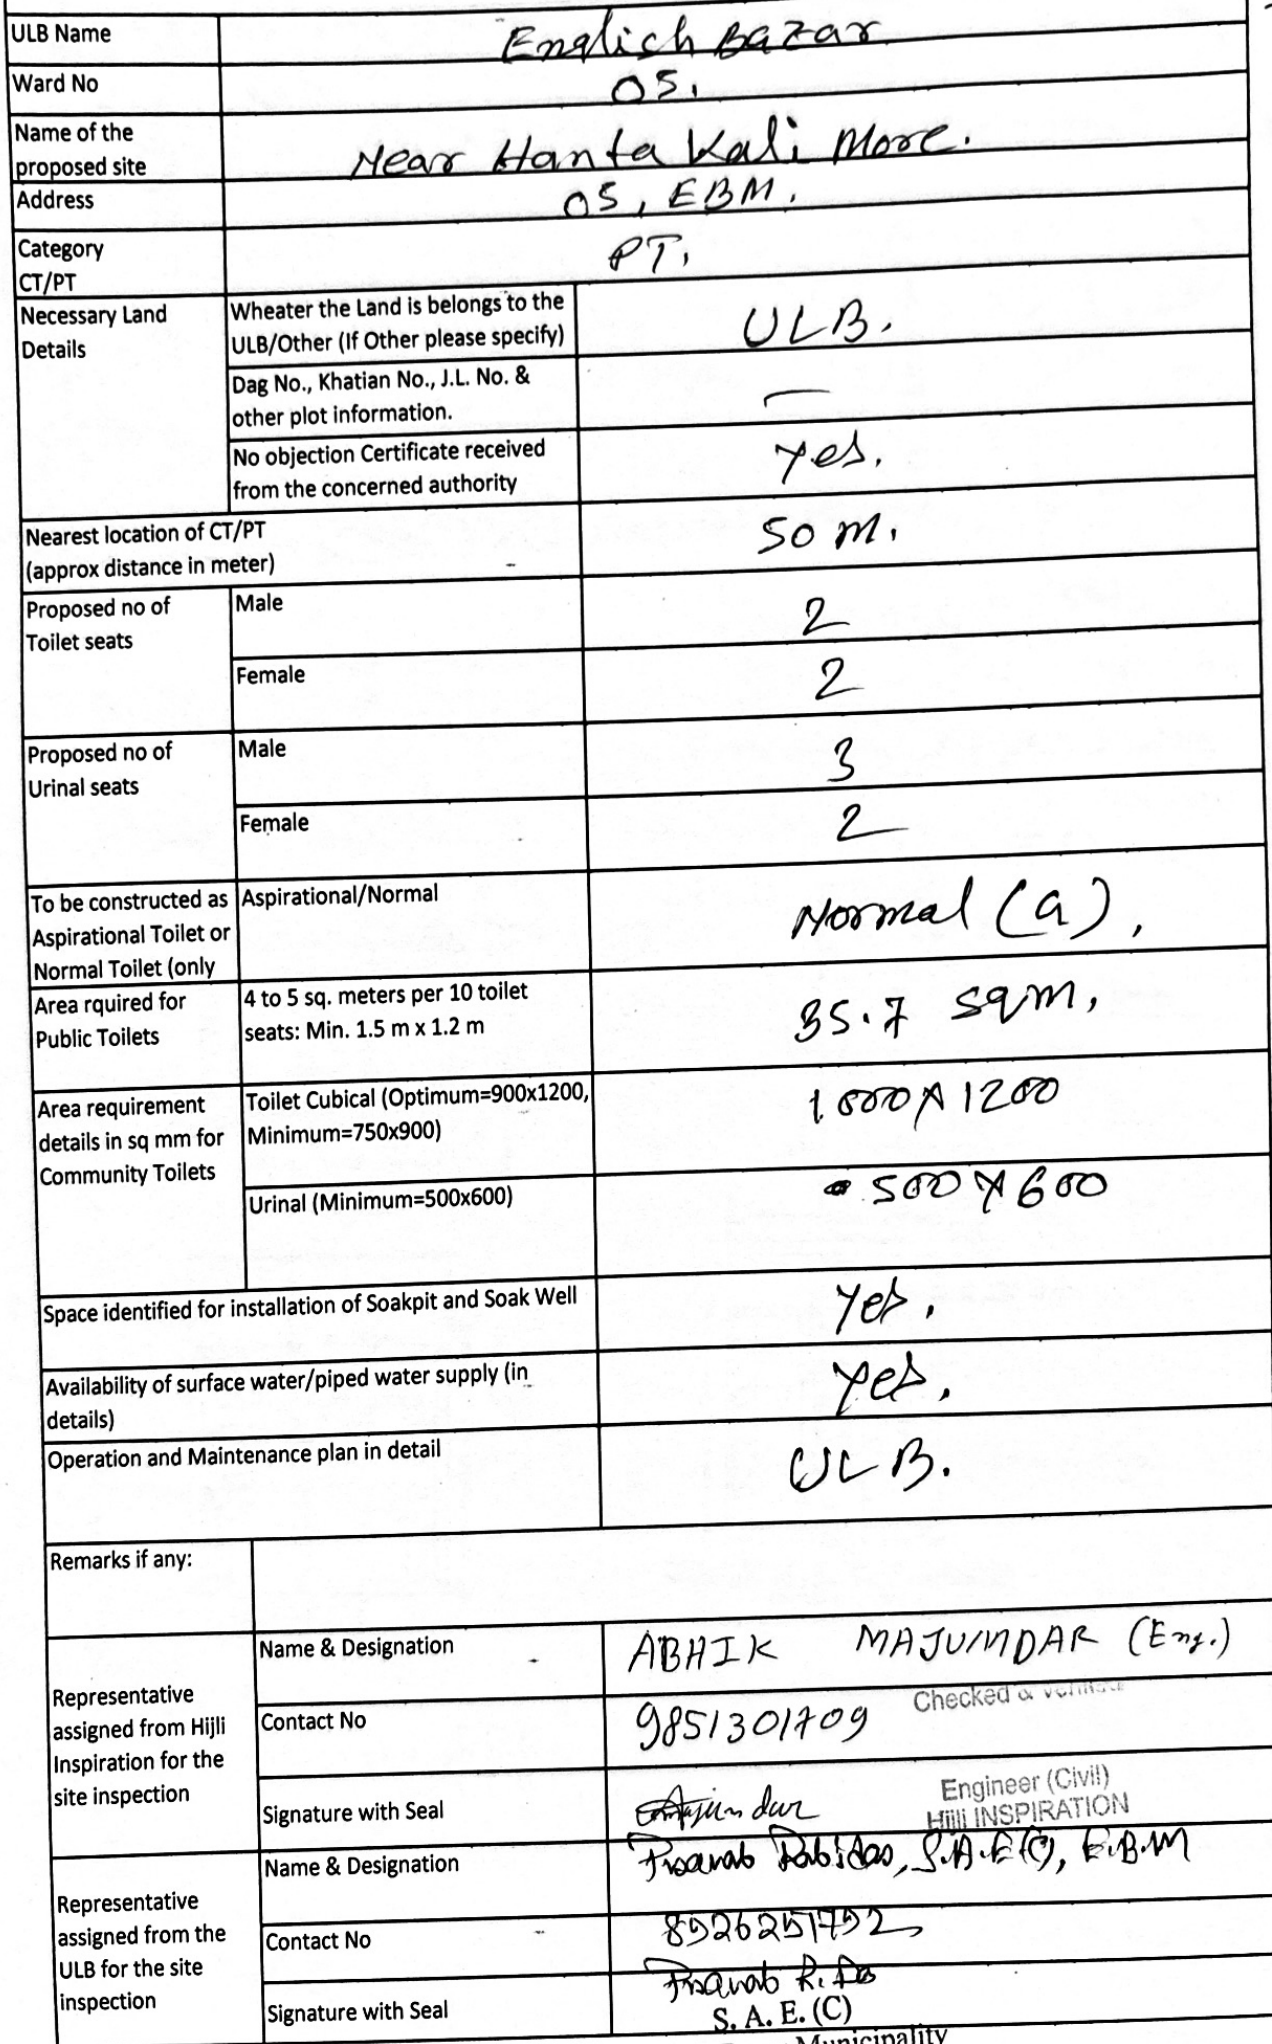 ULB Name English Bazar
Ward No 05.
Name of the
proposed site Near Hanta Kali More.
Address 05, EBM.
Category
CT/PT PT.
Necessary Land
Details
Wheater the Land is belongs to the
ULB/Other (If Other please specify) ULB.
Dag No., Khatian No., J.L. No. &
other plot information. —
No objection Certificate received
from the concerned authority Yes.
Nearest location of CT/PT
(approx distance in meter) 50 m.
Proposed no of
Toilet seats
Male 2
Female 2
Proposed no of
Urinal seats
Male 3
Female 2
To be constructed as
Aspirational Toilet or
Normal Toilet (only
Aspirational/Normal Normal (a),
Area rquired for
Public Toilets
4 to 5 sq. meters per 10 toilet
seats: Min. 1.5 m x 1.2 m 35.7 sqm,
Area requirement
details in sq mm for
Community Toilets
Toilet Cubical (Optimum=900x1200,
Minimum=750x900) 1000 X 1200
Urinal (Minimum=500x600) 500 X 600
Space identified for installation of Soakpit and Soak Well Yes.
Availability of surface water/piped water supply (in
details) Yes.
Operation and Maintenance plan in detail ULB.
Remarks if any:
Representative
assigned from Hijli
Inspiration for the
site inspection
Name & Designation ABHIK MAJUMDAR (Eng.)
Checked &
Contact No 9851301709
Signature with Seal
Engineer (Civil)
Hijli INSPIRATION
Representative
assigned from the
ULB for the site
inspection
Name & Designation Pranab Rabidas, S.A.E (C), E.B.M
Contact No
Signature with Seal Pranab R. Das
S. A. E. (C)
Municipality